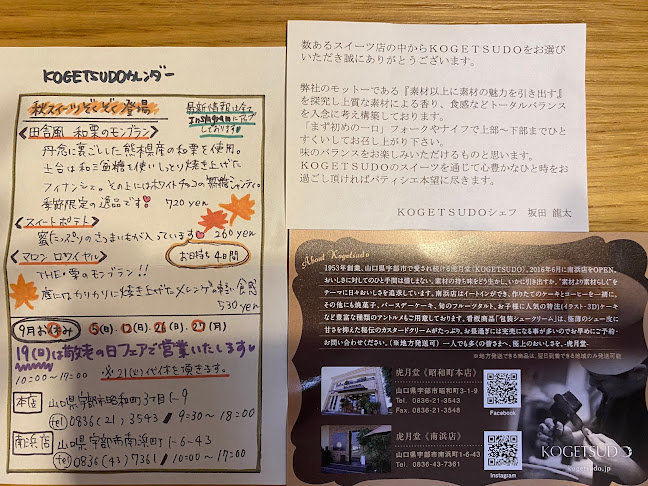 KOGETSUDOカレンダー
秋スイーツぞくぞく登場
最新情報は全て
Instagramにアップ
しております
〈田舎風 和栗のモンブラン〉
丹念に裏ごしした熊本県産の和栗を使用。
土台は和三盆糖を使いしっとり焼き上げた
フィナンシェ。その上にはホワイトチョコの無糖シャンティ。
季節限定の逸品です 720yen
〈スイートポテト〉
蜜たっぷりのさつまいもが入っています 260yen
お日持ち4日間
〈マロンロワイヤル〉
THE・栗のモンブラン!!
底にはカリカリに焼き上げたメレンゲの軽い食感
530yen
9月お休み
5(日)
26(日) 27(月)
19(日)は敬老の日フェアで営業いたします
10:00〜17:00
※21(火)代休を頂きます。
本店
山口県宇部市昭和町3丁目1-9
tel 0836(21)3543 / 9:30〜18:00
南浜店
山口県宇部市南浜町1-6-43
tel 0836(43)7361 / 10:00〜17:00
数あるスイーツ店の中からKOGETSUDOをお選び
いただき誠にありがとうございます。
弊社のモットーである『素材以上に素材の魅力を引き出す』
を探究し上質な素材による香り、食感などトータルバランス
を入念に考え構築しております。
「まず初めの一口」フォークやナイフで上部〜下部までひと
すくいしてお召し上がり下さい。
味のバランスをお楽しみいただけるものと思います。
KOGETSUDOのスイーツを通じて心豊かなひと時をお
過ごし頂ければパティシエ本望に尽きます。
KOGETSUDOシェフ 坂田 龍太
About Kogetsudo
1953年創業、山口県宇部市で愛され続ける虎月堂(KOGETSUDO)。2016年6月に南浜店をOPEN。
おいしさに対してのひと手間は惜しまない。素材の持ち味をどう生かしいかに引き出すか、"素材より素材らしく"を
テーマに日々おいしさを追求しています。南浜店はイートインができ、作りたてのケーキとコーヒーを一緒に。
その他にも焼菓子、バースデーケーキ、旬のフルーツタルト、お子様に人気の特注(イラスト・3D)ケーキ
など豊富な種類のアントルメもご用意しております。看板商品「包装シュークリーム」は、極薄のシュー皮に
甘さを抑えた秘伝のカスタードクリームがたっぷり。お昼過ぎには完売になる事が多いのでお早めにご予約・
お問い合わせください。(※地方発送可) 一人でも多くの皆さまへ、極上のおいしさを。虎月堂。
※地方発送できる商品は、翌日到着できる地域のみ発送可能
虎月堂《昭和町本店》
山口県宇部市昭和町3-1-9
Tel. 0836-21-3543
Fax. 0836-21-3548
Facebook
虎月堂《南浜店》
山口県宇部市南浜町1-6-43
Tel. 0836-43-7361
Instagram
KOGETSUDO
kogetsudo.jp